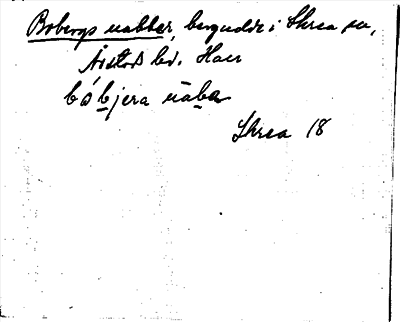 Bobergs nabbar, bergudde i Skrea sn,
Årstads hd. Hall
bó bjera nába
Skrea 18